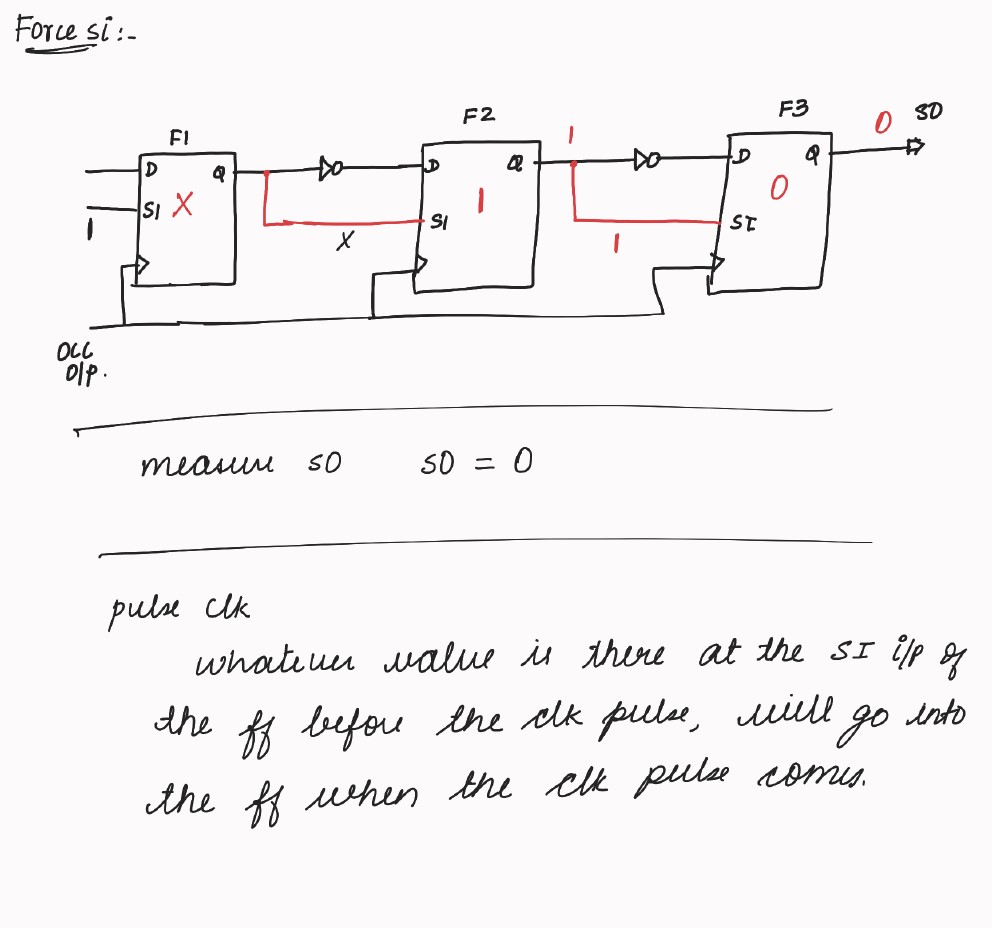 Force si:-
F1 F2 F3
D Q D Q D Q SO
SI X SI 1 SI 0 0
1 X 1 1
OCC
O/P.
measure SO SO = 0
pulse clk
whatever value is there at the SI i/p of
the ff before the clk pulse, will go into
the ff when the clk pulse comes.